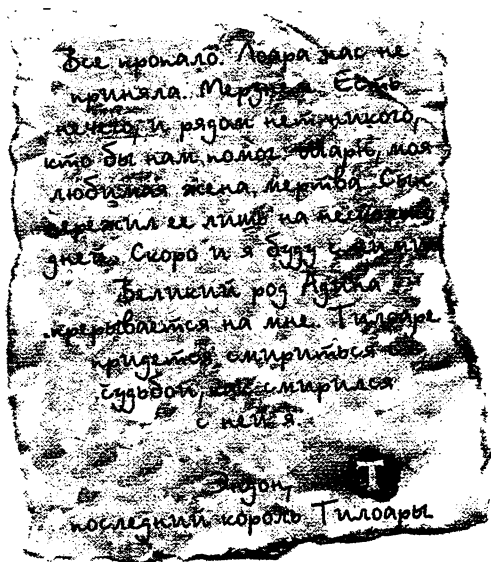 Все пропало. Лоара нас не
приняла. Есть
нечего, и рядом нет никого,
кто бы нам помог. Шарн, моя
любимая жена, мертва. Сын
пережил ее лишь на несколько
дней. Скоро и я буду с ними.
Великий род Адина
прерывается на мне. Тилоаре
придется смириться с
судьбой, как смирился
с ней я.
Т
Эндон,
последний король Тилоары